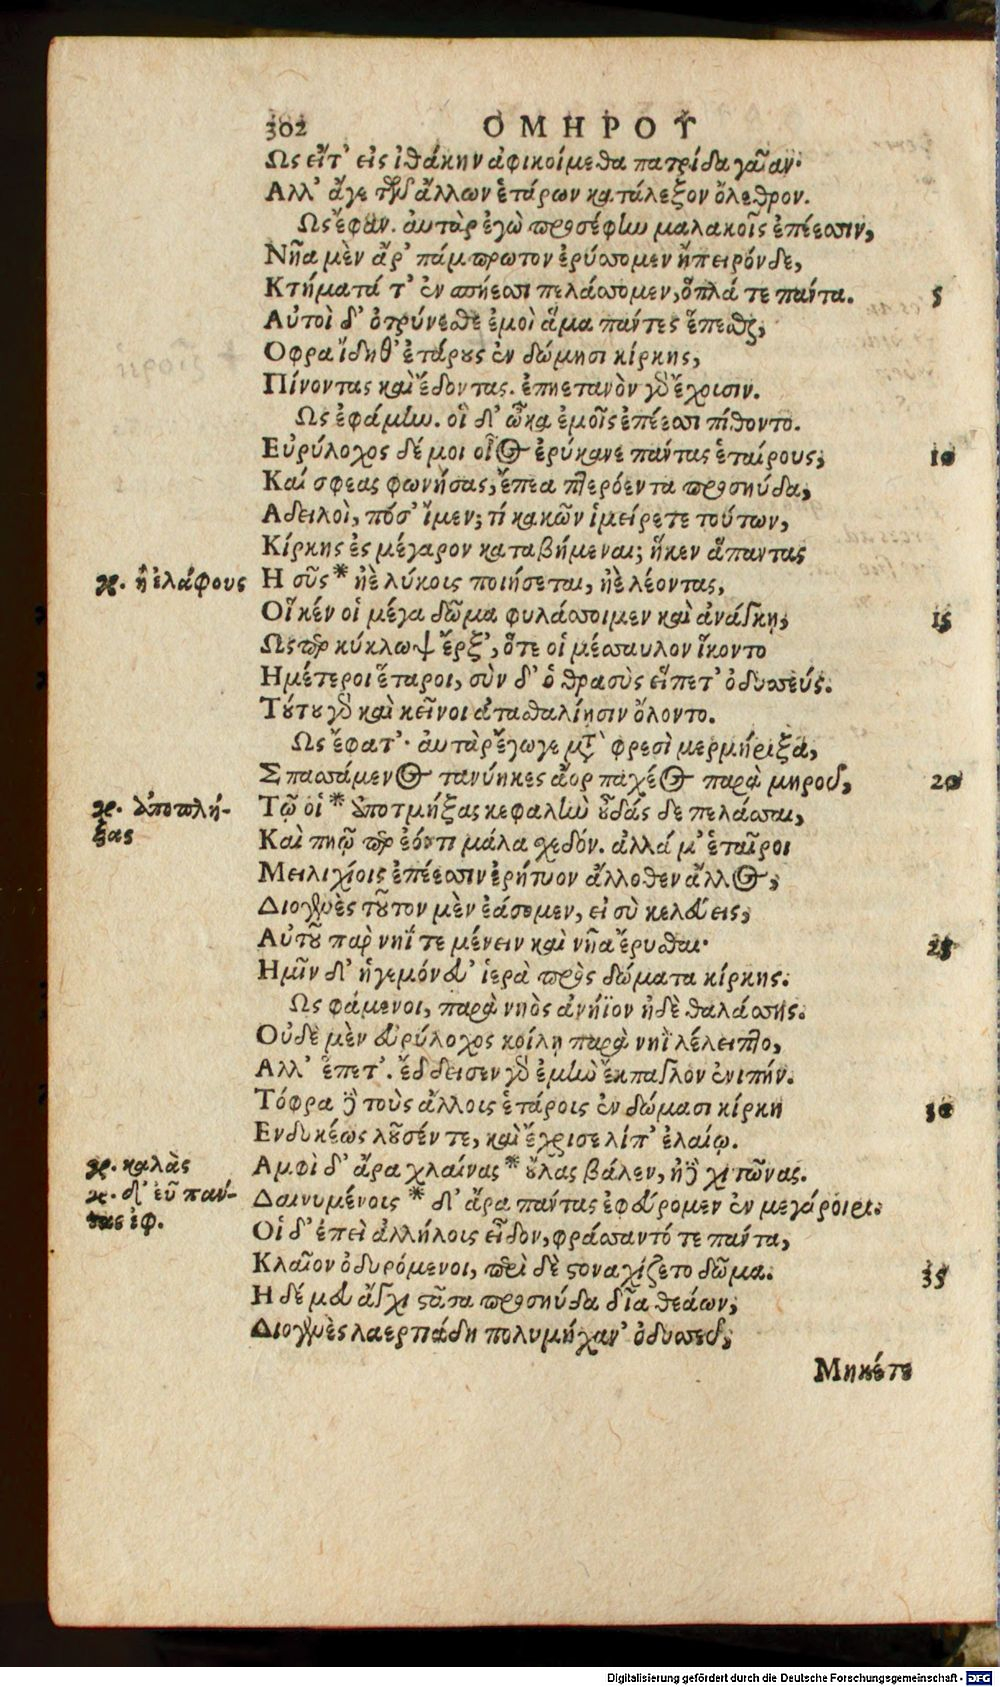 302 ΟΜΗΡΟΥ
Ως εἴτ' εἰς ἰθάκην ἀφικοίμεθα πατρίδα γαῖαν·
Αλλ' ἄγε τῶν δ' ἄλλων ἑτάρων κατάλεξον ὄλεθρον.
Ως ἔφαν. αὐτὰρ ἐγὼ προσέφην μαλακοῖς ἐπέεσσιν,
Νῆα μὲν ἂρ' πάμπρωτον ἐρύσσομεν ἤπειρόνδε,
Κτήματά τ' ἐν σπήεσσι πελάσσομεν, ὅπλά τε πάντα. 5
Αὐτοὶ δ' ὀτρύνεσθε ἐμοὶ ἅμα πάντες ἕπεσθαι,
Οφρα ἴδηθ' ἑτάρους ἐν δώμασι κίρκης,
Πίνοντας καὶ ἔδοντας. ἐπηετανὸν γὰρ ἔχοισιν.
Ως ἐφάμην. οἱ δ' ὦκα ἐμοῖς ἐπέεσσι πίθοντο.
Εὐρύλοχος δέ μοι οἶος ἐρύκανε πάντας ἑταίρους, 10
Καί σφεας φωνήσας, ἔπεα πτερόεντα προσηύδα,
Αδειλοὶ, πόσ' ἴμεν; τί κακῶν ἱμείρετε τούτων,
Κίρκης ἐς μέγαρον καταβήμεναι; ἥκεν ἅπαντας
γρ. ἢ ἐλάφους Η σῦς * ἠὲ λύκοις ποιήσεται, ἠὲ λέοντας,
Οἵ κέν οἱ μέγα δῶμα φυλάσσοιμεν καὶ ἀνάγκη, 15
Ως περ κύκλωψ ἔρξ', ὅτε οἱ μέσσαυλον ἵκοντο
Ημέτεροι ἕταροι, σὺν δ' ὁ θρασὺς εἵπετ' ὀδυσσεύς.
Τούτου γὰρ καὶ κεῖνοι ἀτασθαλίῃσιν ὄλοντο.
Ως ἔφατ'· αὐτὰρ ἔγωγε μετὰ φρεσὶ μερμήριξα,
Σπασσάμενος τανύηκες ἄορ παχέος παρὰ μηροῦ, 20
γρ. ἀποπλή- Τῷ οἱ * ἀποτμήξας κεφαλὴν οὖδάς δε πελάσσαι,
ξας Καὶ πηῷ περ ἐόντι μάλα σχεδόν. ἀλλά μ' ἑταῖροι
Μειλιχίοις ἐπέεσσιν ἐρήτυον ἄλλοθεν ἄλλος,
Διογενὲς τοῦτον μὲν ἐάσομεν, εἰ σὺ κελεύεις,
Αὐτοῦ παρ νηΐ τε μένειν καὶ νῆα ἔρυσθαι· 25
Ημῖν δ' ἡγεμόνευ' ἱερὰ πρὸς δώματα κίρκης.
Ως φάμενοι, παρὰ νηὸς ἀνήϊον ἠδὲ θαλάσσης.
Οὐδὲ μὲν εὐρύλοχος κοίλῃ παρὰ νηῒ λέλειπτο,
Αλλ' ἕπετ'. ἔδδεισεν γὰρ ἐμὴν ἔκπαγλον ἐνιπήν.
Τόφρα δὲ τοὺς ἄλλοις ἑτάροις ἐν δώμασι κίρκη 30
Ενδυκέως λοῦσέν τε, καὶ ἔχρισε λίπ' ἐλαίῳ.
γρ. καλὰς Αμφὶ δ' ἄρα χλαίνας * οὔλας βάλεν, ἠδὲ χιτῶνας.
γρ. δ' εὖ πάν- Δαινυμένοις * δ' ἄρα πάντας ἐφεύρομεν ἐν μεγάροισι.
τας ἐφ. Οἱ δ' ἐπεὶ ἀλλήλοις εἶδον, φράσσαντό τε πάντα,
Κλαῖον ὀδυρόμενοι, περὶ δὲ στοναχίζετο δῶμα. 35
Η δέ μευ ἄγχι στᾶσα προσηύδα δῖα θεάων,
Διογενὲς λαερτιάδη πολυμήχαν' ὀδυσσεῦ,
Μηκέτε
Digitalisierung gefördert durch die Deutsche Forschungsgemeinschaft - DFG